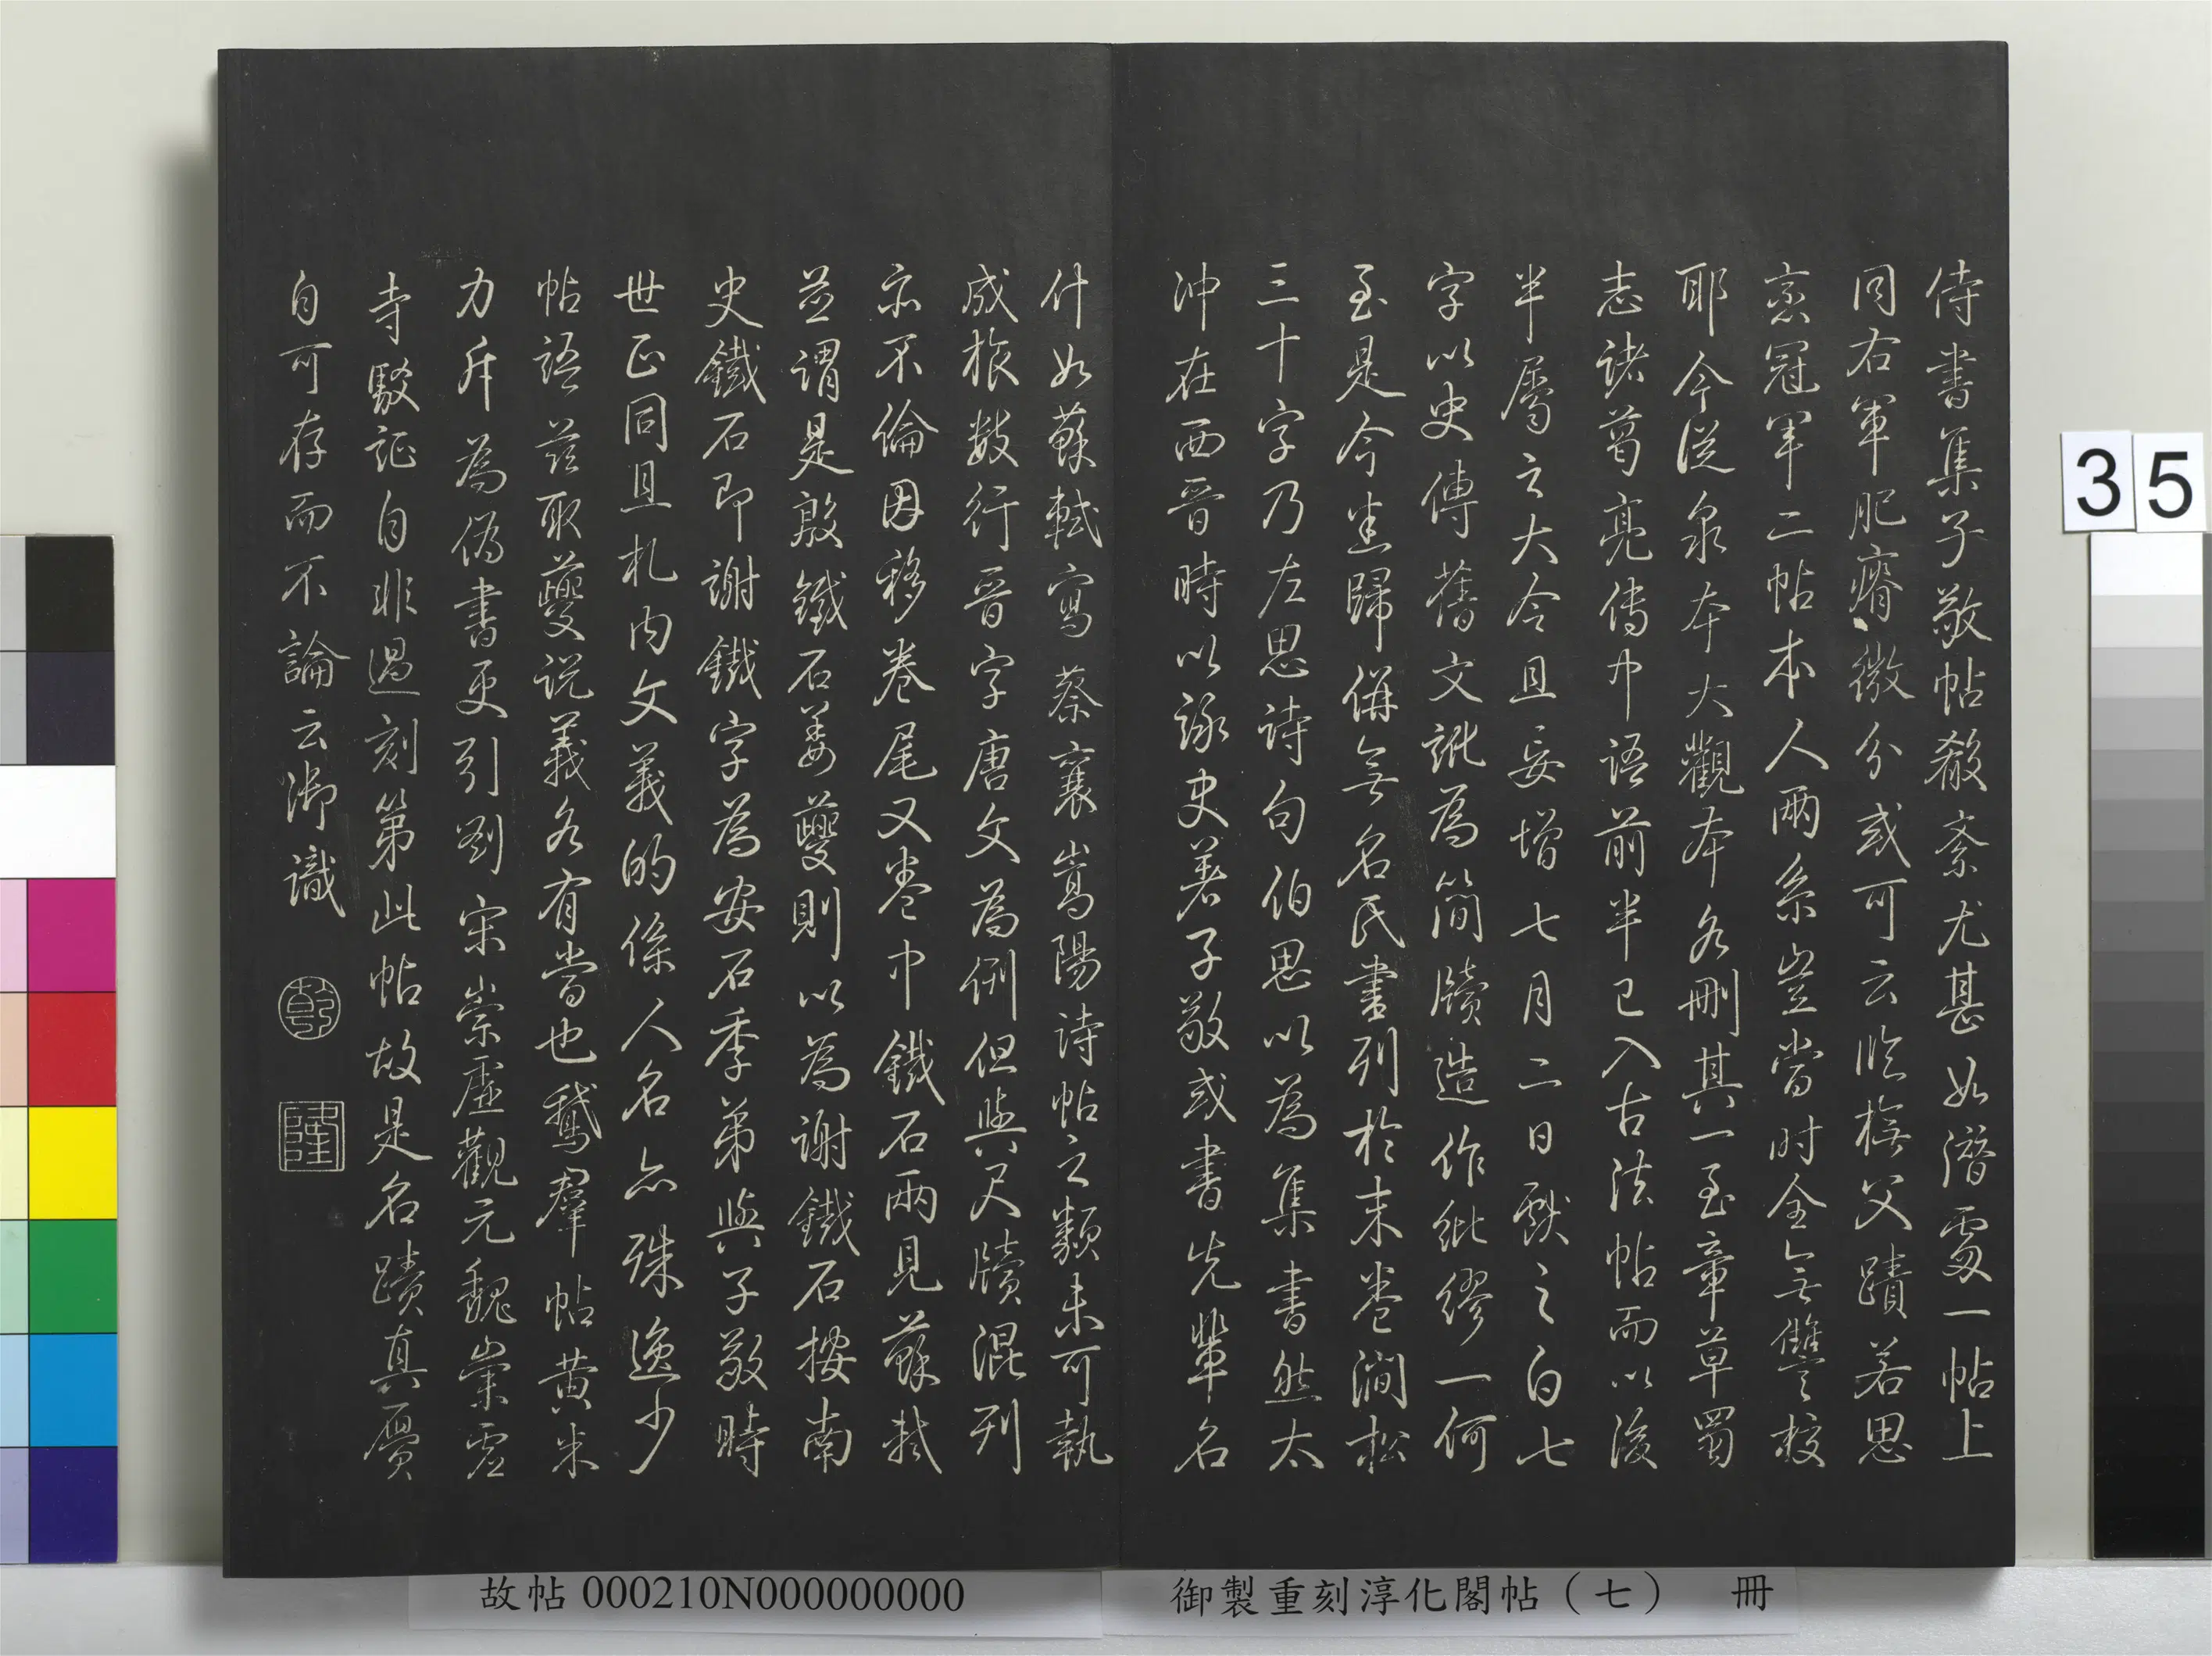 侍書集子敬帖殽紊尤甚如潛處一帖上
同右軍肥瘠微分或可云臨橅父蹟若思
恋冠軍二帖本人兩系豈當时全無讐校
耶今從泉本大觀本各刪其一至章草蜀
志諸葛亮傳中語前半已入古法帖而以後
半屬之大令且妄增七月二日獻之白七
字以史傳舊文訛為簡牘造作紕繆一何
至是今悉歸併無名氏書列於末卷澗松
三十字乃左思詩句伯思以為集書然太
沖在西晉時以詠史著子敬或書先輩名
什如蘇軾寫蔡襄嵩陽詩帖之類未可執
成旅數行晉字唐文為例但與尺牘混列
亦不倫因移卷尾又卷中鐵石兩見蘇軾
並謂是殷鐵石姜夔則以為謝鐵石按南
史鐵石即謝鐵字為安石季弟與子敬時
世正同且札內文義的係人名亦殊逸少
帖語茲取夔說義各有當也鵝羣帖黃米
力斥為偽書更引劉宋崇虛觀元魏崇虛
寺駁証自非過刻第此帖故是名蹟真贗
自可存而不論云御識
乾
隆
35
故帖000210N000000000
御製重刻淳化閣帖（七） 冊